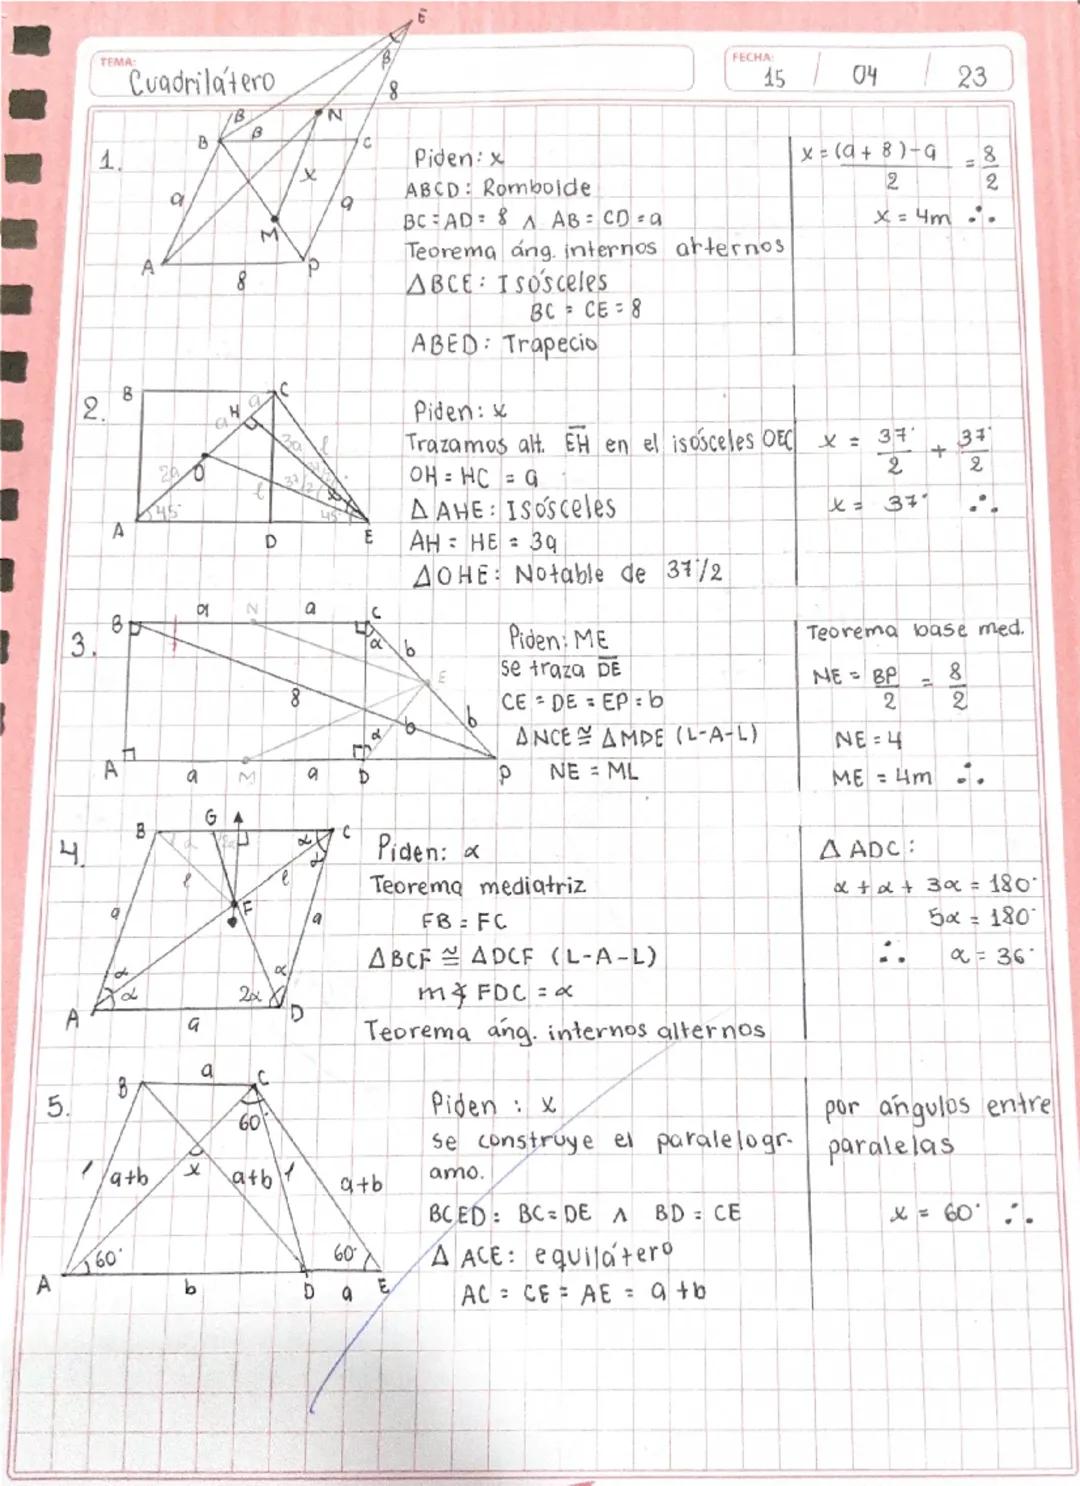 TEMA:
Cuadrilátero
FECHA:
15 / 04 / 23
1.
E
β
8
B
β
β
N
C
a
x
a
M
A
8
P
Piden: x
ABCD: Romboide
BC = AD = 8 ∧ AB = CD = a
Teorema áng. internos arternos
△BCE: Isósceles
BC = CE = 8
ABED: Trapecio
x = (a + 8) - a / 2 = 8 / 2
x = 4m ∴
2.
B
C
a
H
a
2a
O
3a
l
l
37/2
37/2
x
45°
45°
A
D
E
Piden: x
Trazamos alt. EH en el isósceles OEC
OH = HC = a
△ AHE: Isósceles
AH = HE = 3a
△OHE: Notable de 37°/2
x = 37° / 2 + 37° / 2
x = 37° ∴
3.
B
a
N
a
C
α
b
E
8
b
b
α
A
a
M
a
D
P
Piden: ME
se traza DE
CE = DE = EP = b
△NCE ≅ △MDE (L-A-L)
NE = ML
Teorema base med.
NE = BP / 2 = 8 / 2
NE = 4
ME = 4m ∴
4.
B
G
C
α
2α
α
α
l
l
a
F
a
α
α
α
2α
A
a
D
Piden: α
Teorema mediatriz
FB = FC
△BCF ≅ △DCF (L-A-L)
m∢ FDC = α
Teorema áng. internos alternos
△ ADC:
α + α + 3α = 180°
5α = 180°
∴ α = 36°
5.
B
a
C
60°
a+b
x
a+b
a+b
60°
60°
A
b
D
a
E
Piden : x
se construye el paralelogr-
amo.
BCED: BC = DE ∧ BD = CE
△ ACE: equilátero
AC = CE = AE = a + b
por ángulos entre
paralelas
x = 60° ∴